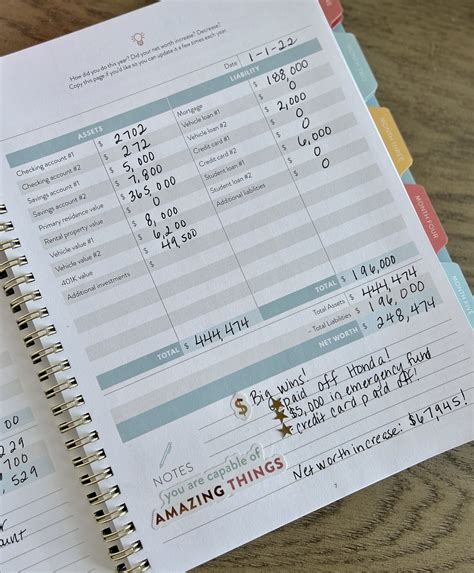 How did you do this year? Did your net worth increase? Decrease?
Copy this page if you'd like so you can update it a few times each year.
Date 1-1-22
ASSETS
Checking account #1 $ 2702
Checking account #2 $ 272
Savings account #1 $ 5,000
Savings account #2 $ 7,800
Primary residence value $ 365,000
Rental property value $ 0
Vehicle value #1 $ 8,000
Vehicle value #2 $ 6,200
401K value $ 49,500
Additional investments $
TOTAL $ 444,474
LIABILITY
Mortgage $ 188,000
Vehicle loan #1 $ 0
Vehicle loan #2 $ 2,000
Credit card #1 $ 0
Credit card #2 $ 6,000
Student loan #1 $ 0
Student loan #2 $
Additional liabilities $
TOTAL $ 196,000
Total Assets $ 444,474
Total Liabilities $ 196,000
NET WORTH $ 248,474
NOTES
$ Big wins!
paid off Honda!
$5,000 in emergency fund
credit card paid off!
Net worth increase: $67,945!
you are capable of
AMAZING THINGS
7
MONTH THREE
MONTH FOUR
MONTH FIVE
000
550
529